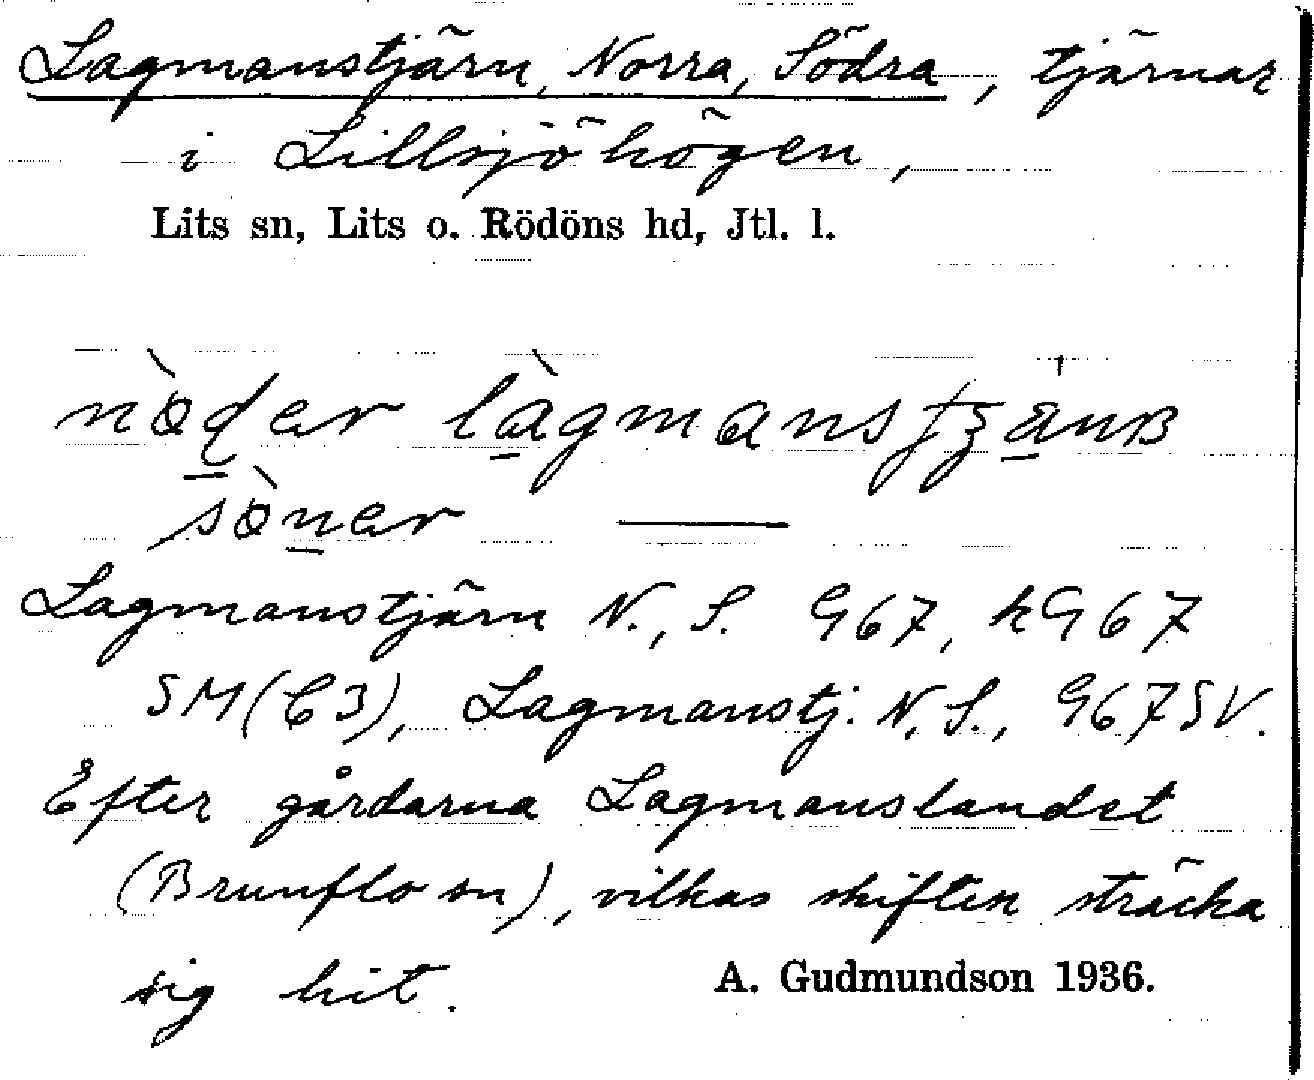 Lagmanstjärn, Norra, Södra, tjärnar
i Lillsjöhögen,
Lits sn, Lits o. Rödöns hd, Jtl. l.
Lagmanstjärn N., S. G67, kG67
SM(C3), Lagmanstj. N, S., G67SV.
Efter gårdarna Lagmanslandet
(Brunflo sn), vilkas skiften sträcka
sig hit.
A. Gudmundson 1936.